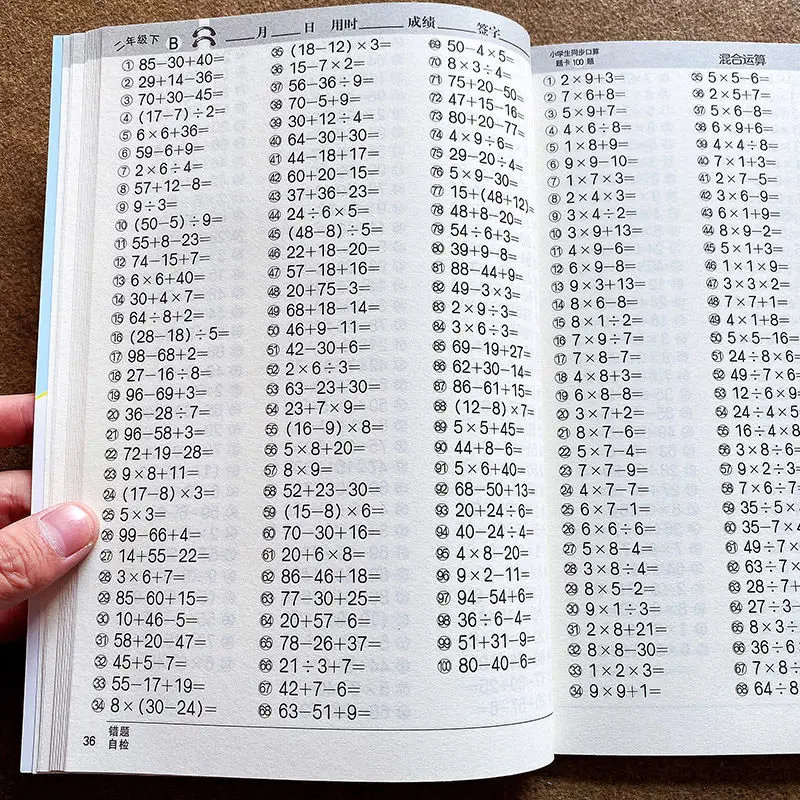 二年级下 B ___月___日 用时___成绩___签字___
① 85−30+40=
② 29+14−36=
③ 70+30−45=
④ (17−7)÷2=
⑤ 6×6+36=
⑥ 59−6+9=
⑦ 2×6÷4=
⑧ 57+12−8=
⑨ 9÷3=
⑩ (50−5)÷9=
⑪ 55+8−23=
⑫ 74−15+7=
⑬ 6×6+40=
⑭ 30+4×7=
⑮ 64÷8+2=
⑯ (28−18)÷5=
⑰ 98−68+2=
⑱ 27−16÷8=
⑲ 96−69+3=
⑳ 36−28÷7=
㉑ 96−58+3=
㉒ 72+19−28=
㉓ 9×8+11=
㉔ (17−8)×3=
㉕ 5×3=
㉖ 99−66+4=
㉗ 14+55−22=
㉘ 3×6+7=
㉙ 85−60+15=
㉚ 10+46−5=
㉛ 58+20−47=
㉜ 45+5−7=
㉝ 55−17+19=
㉞ 8×(30−24)=
㉟ (18−12)×3=
㊱ 15−7×2=
㊲ 56−36÷9=
㊳ 70−5+9=
㊴ 30+12÷4=
㊵ 64−30+30=
㊶ 44−18+17=
㊷ 60+20−15=
㊸ 37+36−23=
㊹ 24÷6×5=
㊺ (48−8)÷5=
㊻ 22+18−20=
㊼ 57−18+16=
㊽ 20+75−3=
㊾ 68+18−14=
㊿ 46+9−11=
51 42−30+6=
52 2×6÷3=
53 63−23+30=
54 23+7×9=
55 (16−9)×8=
56 5×8+20=
57 8×9=
58 52+23−30=
59 (15−8)×6=
60 70−30+16=
61 20+6×8=
62 86−46+18=
63 77−30+25=
64 20+57−6=
65 78−26+37=
66 21÷3+7=
67 42+7−6=
68 63−51+9=
69 50−4×5=
70 8×3÷4=
71 75+20−50=
72 47+15−16=
73 80+20−77=
74 4×9÷6=
75 29−20÷4=
76 5×9−30=
77 15+(48+12)=
78 48+8−20=
79 54÷6+3=
80 39+9−8=
81 88−44+9=
82 49−3×3=
83 2×9÷3=
84 3×6÷3=
85 69−19+27=
86 62+30−14=
87 86−61+15=
88 (12−8)×7=
89 5×5+45=
90 44+8−6=
91 5×6+40=
92 68−50+13=
93 20+24÷6=
94 40−24÷4=
95 4×8−20=
96 9×2−11=
97 94−54+6=
98 36÷6−4=
99 51+31−9=
100 80−40−6=
36 错题
自检
小学生同步口算
题卡100题
混合运算
① 2×9+3=
② 7×6+8=
③ 5×9+7=
④ 4×6÷8=
⑤ 1×8+9=
⑥ 9×9−10=
⑦ 1×7×3=
⑧ 2×4×3=
⑨ 3×4÷2=
⑩ 3×9+13=
⑪ 4×9−6=
⑫ 6×9−8=
⑬ 9×3+13=
⑭ 8×6−8=
⑮ 8×1÷2=
⑯ 7×9÷7=
⑰ 7×8−7=
⑱ 4×8+3=
⑲ 6×8−8=
⑳ 3×7+2=
㉑ 8×7−6=
㉒ 5×7−4=
㉓ 7×7−9=
㉔ 4×7−7=
㉕ 6×7−1=
㉖ 6×6÷6=
㉗ 5×8−4=
㉘ 3×8÷4=
㉙ 8×5−2=
㉚ 9×1÷3=
㉛ 2×8+21=
㉜ 8×8−30=
㉝ 1×2×3=
㉞ 9×9+1=
㉟ 5×5−6=
㊱ 2×5+7=
㊲ 5×6−8=
㊳ 6×9+6=
㊴ 4×4÷8=
㊵ 7×1+3=
㊶ 2×7−5=
㊷ 3×6−9=
㊸ 6×1+9=
㊹ 8×9−2=
㊺ 5×1+3=
㊻ 1×1×9=
㊼ 3×3×2=
㊽ 7×7+1=
㊾ 4×1+8=
㊿ 5×5−16=
51 24÷8×6=
52 49÷7×6=
53 12÷6×9
54 24÷4×5
55 16÷4×8
56 3×8÷6=
57 9×2÷3=
58 7×6÷7=
59 35÷5×
60 35−7×
61 49÷7×
62 63÷7×
63 28÷7+
64 27÷3−
65 8×3÷
66 36÷6
67 7×8÷
68 64÷8